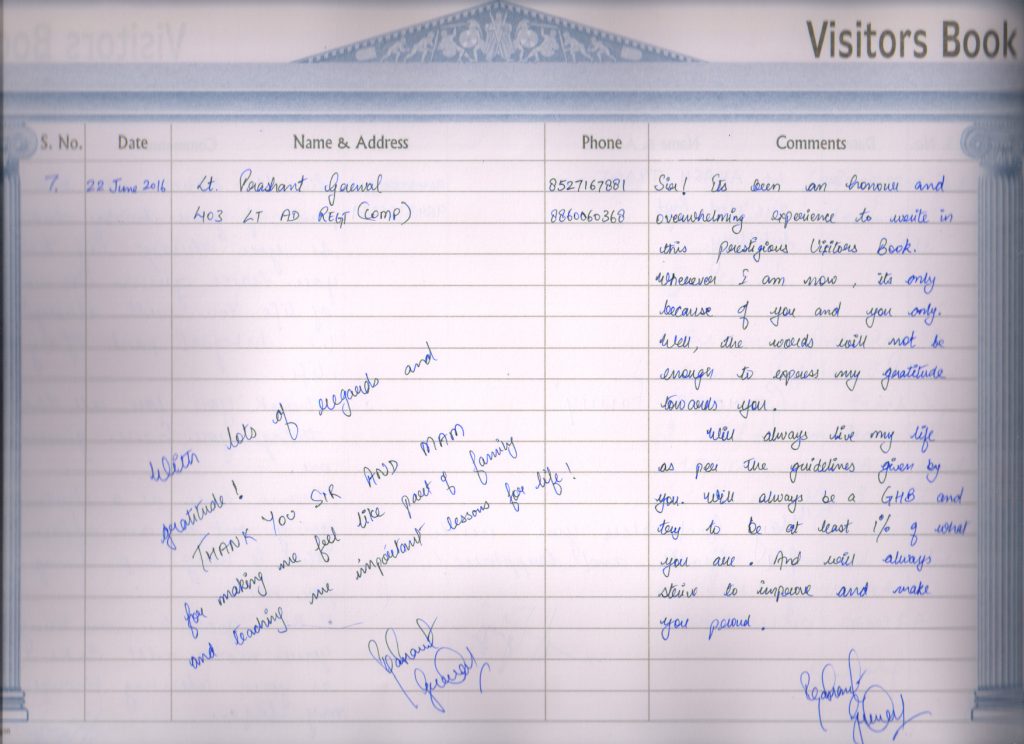 Visitors Book
S. No. Date Name & Address Phone Comments
7. 22 June 2016 Lt. Prashant Grewal 8527167881 Sir! Its been an honour and
403 LT AD REGT (COMP) 8860060368 overwhelming experience to write in
this prestigious Visitors Book.
Wherever I am now, its only
because of you and you only.
Well, the words will not be
enough to express my gratitude
towards you.
Will always live my life
as per the guidelines given by
you. Will always be a GHB and
try to be at least 1% of what
you are. And will always
strive to improve and make
you proud.
With lots of regards and
gratitude!
THANK YOU SIR AND MAM
for making me feel like part of family
and teaching me important lessons for life!
Prashant
Grewal
Prashant
Grewal